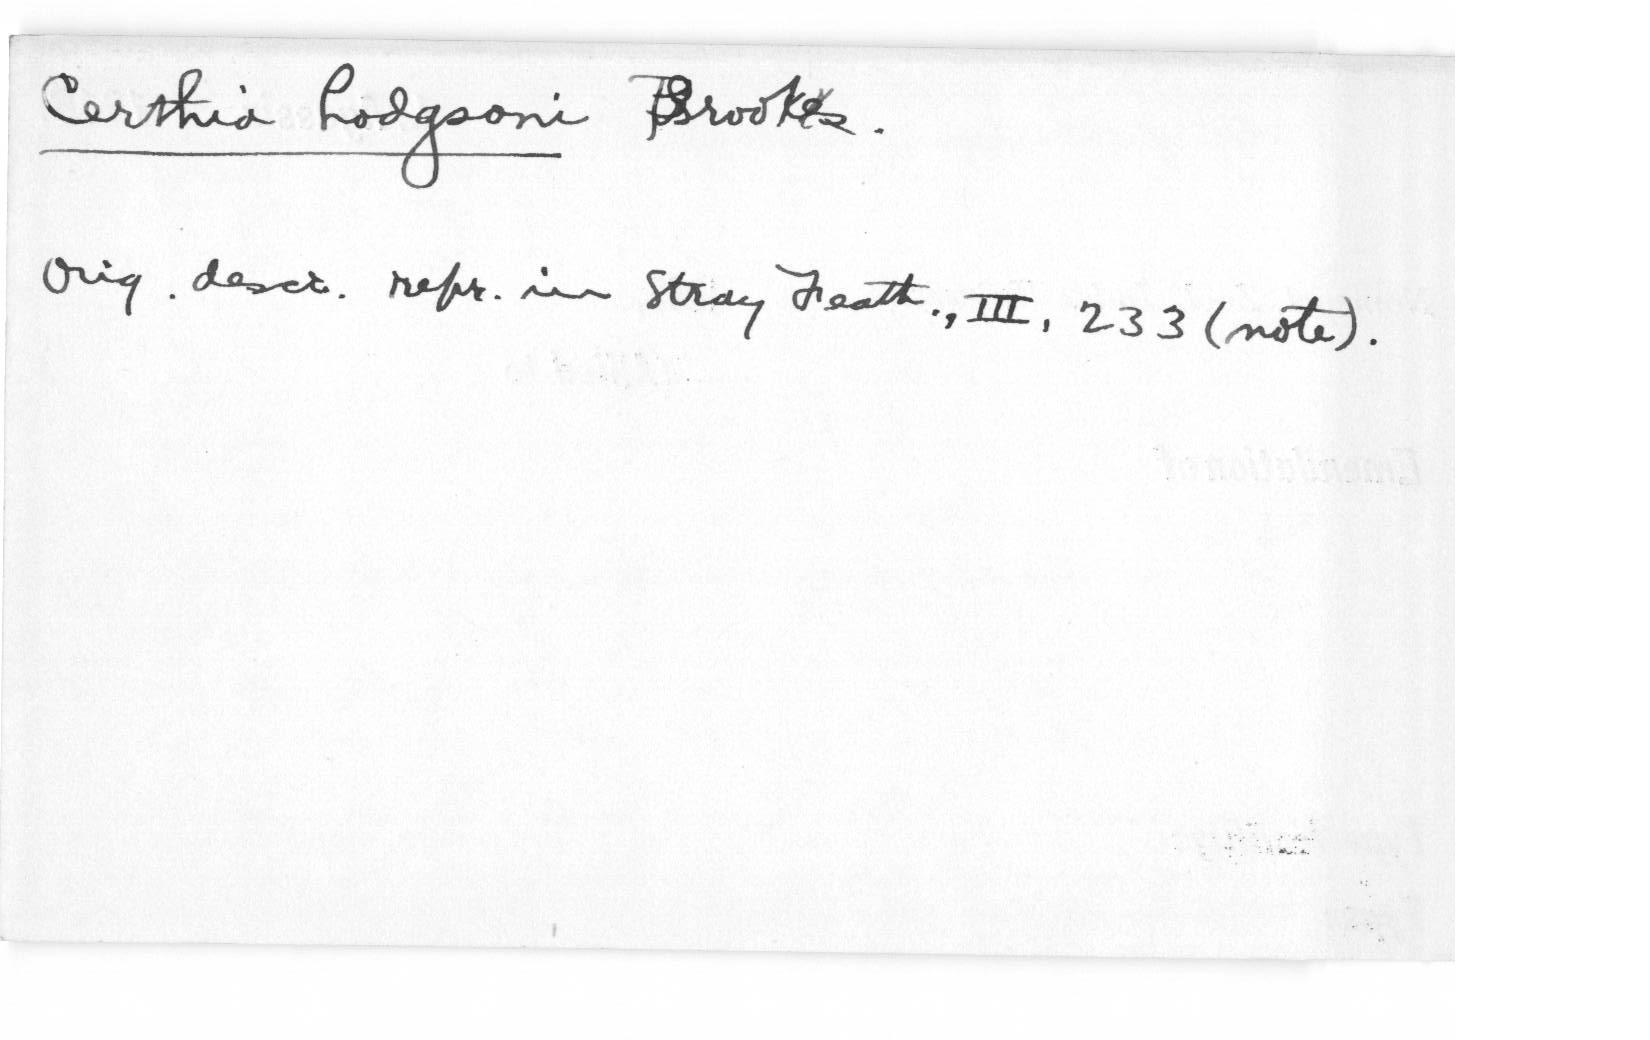 Certhia hodgsoni Brooks.
Orig. descr. repr. in Stray Feath., III, 233 (note).